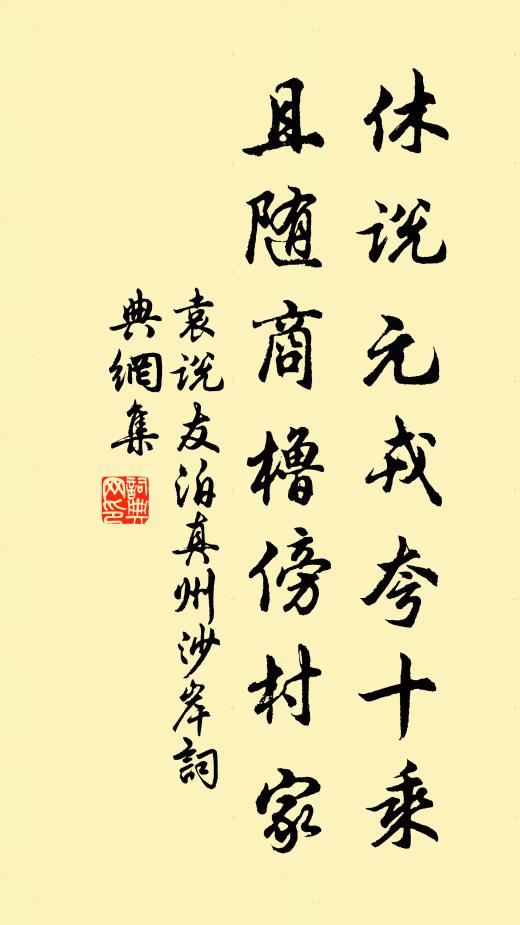 休说元戎夸十乘
且随商橹傍村家
袁说友泊真州沙岸詞
典網集
詞典
网印